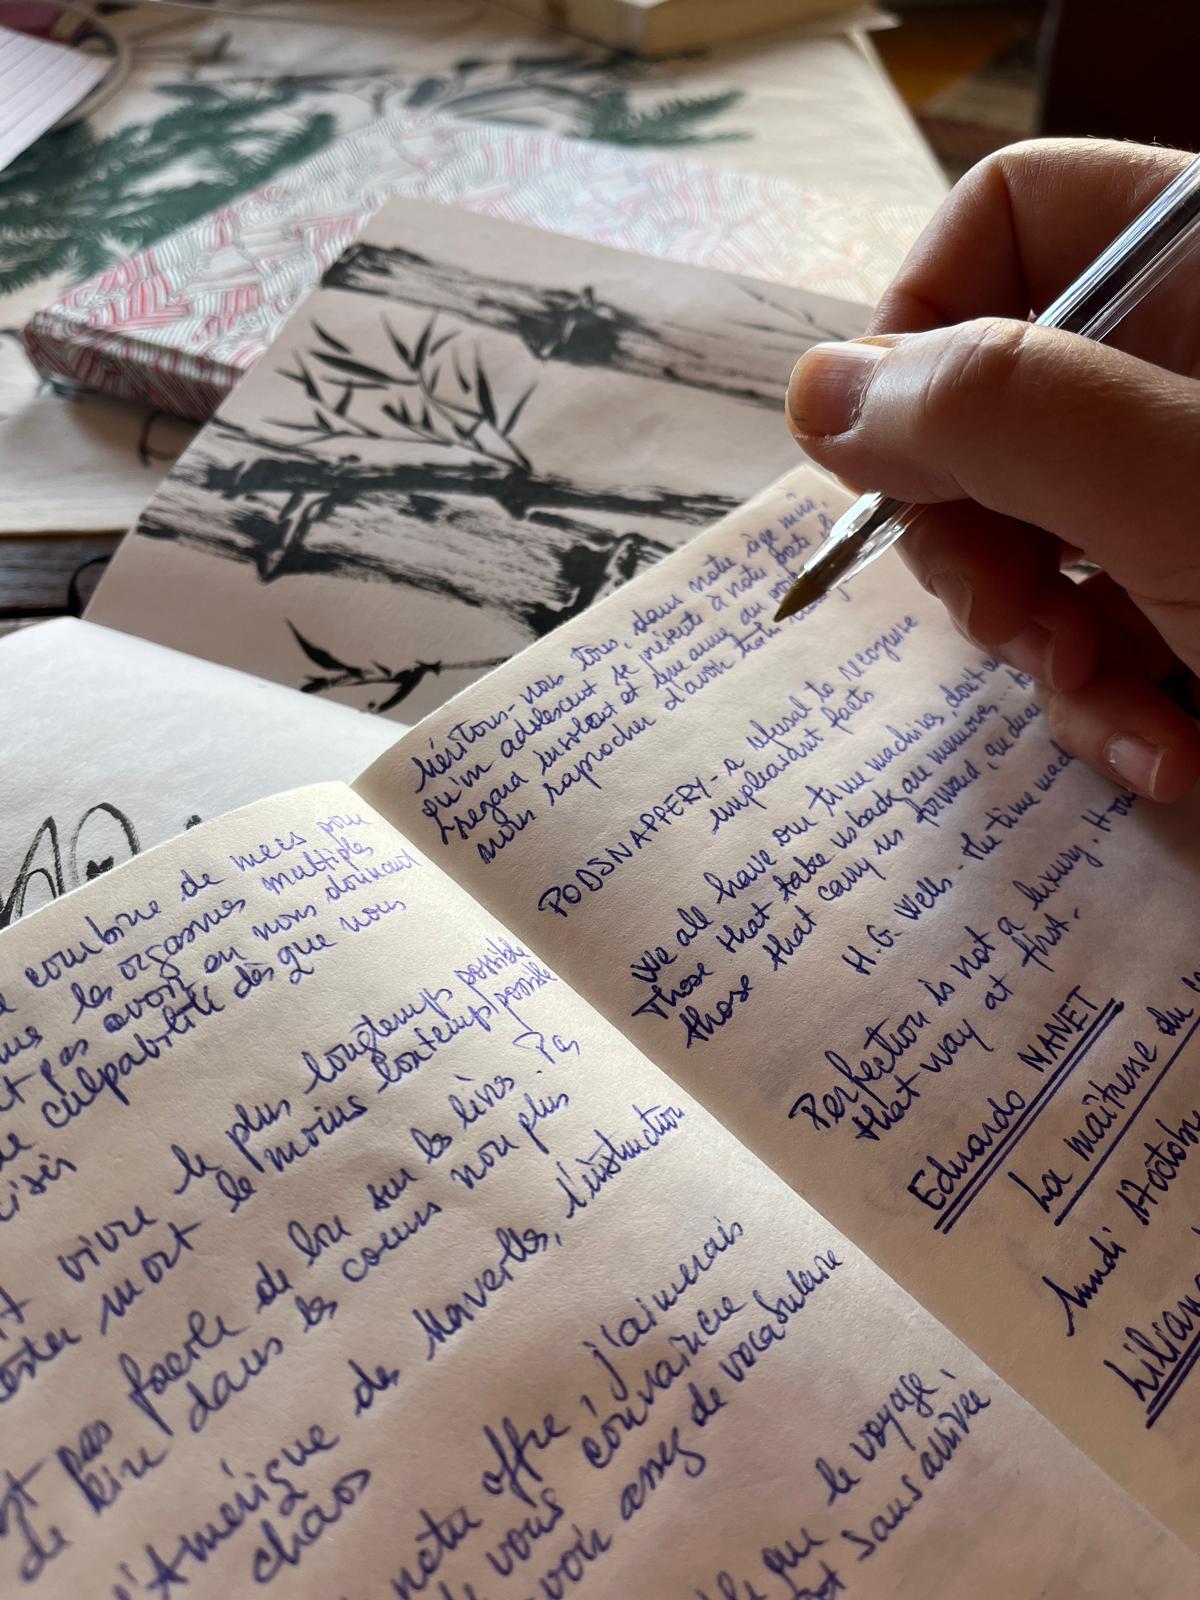 combine de mecs pour
les orgasmes multiples
pas avoir en nous donnant
culpabilité dès que nous
vivre le plus longtemps possible
mort le moins lontemps possible
pas facile de lire sur les livres. Pas
de lire dans les cœurs non plus
l'Amérique des Merveilles, l'instruction
chaos
offre, j'aimerais
vous convaincre
avoir assez de vocabulaire
que le voyage,
sans arrivée
Méritons-nous tous, dans notre âge mûr,
qu'un adolescent se présente à notre porte
regard insolent et que arme au
nous raprocher d'avoir trahi
PODSNAPPERY - a refusal to recognise
unpleasant facts
We all have our time machines, don't
Those that take us back are memories...
those that carry us forward, are
H.G. Wells - the time
Perfection is not a luxury.
that way at first.
Eduardo MANET
La maîtresse du
lundi 17 octobre
Lilian